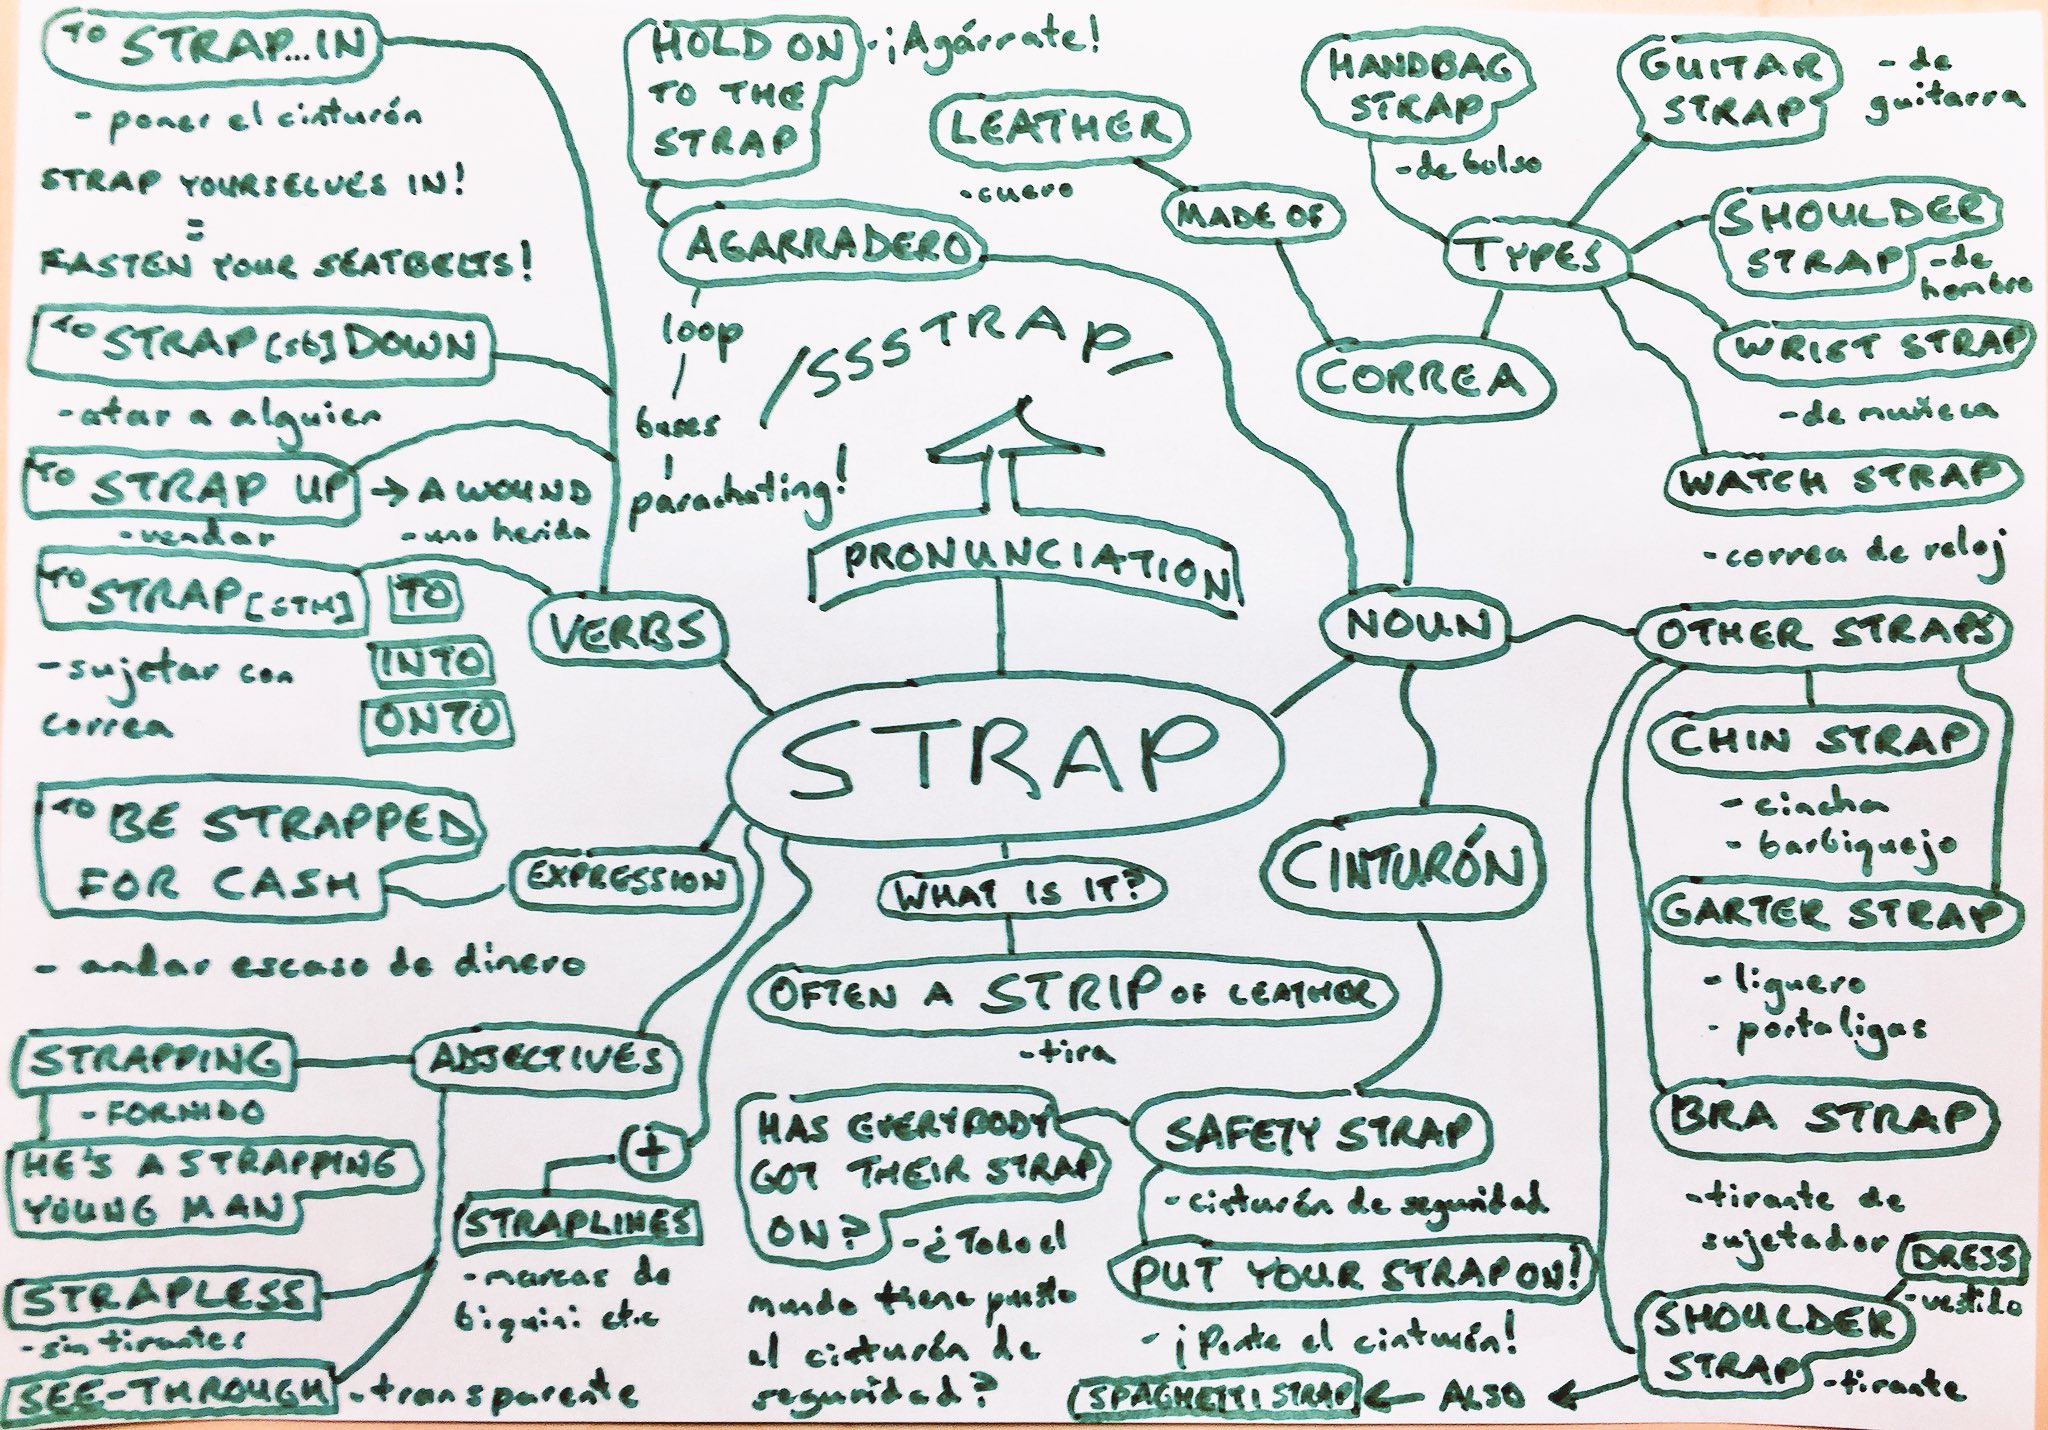 TO STRAP...IN
- poner el cinturón
STRAP YOURSELVES IN!
=
FASTEN YOUR SEATBELTS!
TO STRAP [sb] DOWN
-atar a alguien
TO STRAP UP → A WOUND
-vendar
-una herida
TO STRAP [STH]
TO
INTO
ONTO
-sujetar con
correa
VERBS
HOLD ON
TO THE
STRAP
-¡Agárrate!
AGARRADERO
loop
buses
parachuting!
/SSSTRAP/
PRONUNCIATION
LEATHER
-cuero
MADE OF
HANDBAG
STRAP
-de bolso
GUITAR
STRAP
- de
guitarra
TYPES
SHOULDER
STRAP
-de
hombro
WRIST STRAP
-de muñeca
WATCH STRAP
-correa de reloj
CORREA
NOUN
OTHER STRAPS
CHIN STRAP
- cincha
- barbiquejo
GARTER STRAP
- liguero
- portaligas
BRA STRAP
-tirante de
sujetador
DRESS
-vestido
SHOULDER
STRAP
-tirante
← ALSO ←
SPAGHETTI STRAP
STRAP
CINTURÓN
SAFETY STRAP
-cinturón de seguridad
PUT YOUR STRAP ON!
- ¡Ponte el cinturón!
HAS EVERYBODY
GOT THEIR STRAP
ON?
-¿Todo el
mundo tiene puesto
el cinturón de
seguridad?
WHAT IS IT?
OFTEN A STRIP OF LEATHER
-tira
EXPRESSION
TO BE STRAPPED
FOR CASH
- andar escaso de dinero
ADJECTIVES
STRAPPING
- FORNIDO
HE'S A STRAPPING
YOUNG MAN
STRAPLESS
-sin tirantes
SEE-THROUGH
-transparente
+
STRAPLINES
-marcas de
biquini etc